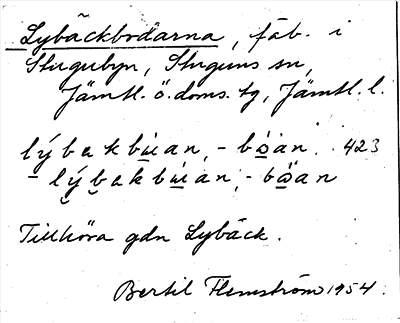 Lybäckbodarna, fäb. i
Stugubyn, Stuguns sn,
Jämtl. ö. doms. tg, Jämtl. l.
lýbakbu̲an, -bo̲an. 423
lýbakbu̲an, -bo̲an
Tillhöra gdn Lybäck.
Bertil Flemström 1954.